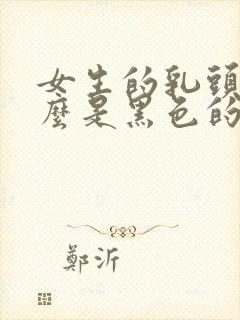 女生的乳頭
麼是黑色的
鄭沂